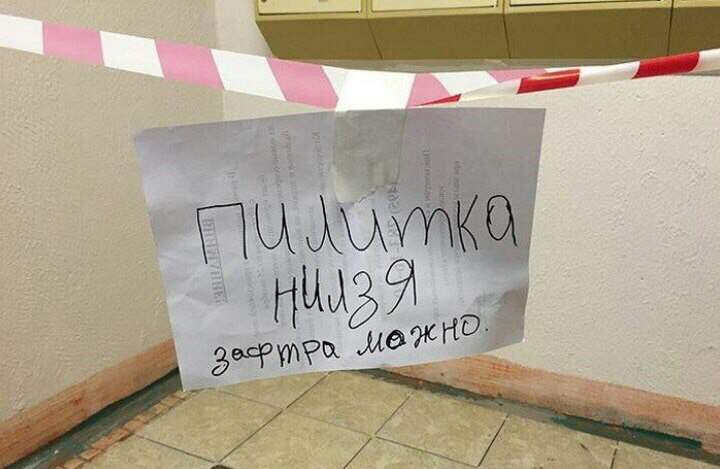 пилитка
нилзя
зафтра можно.